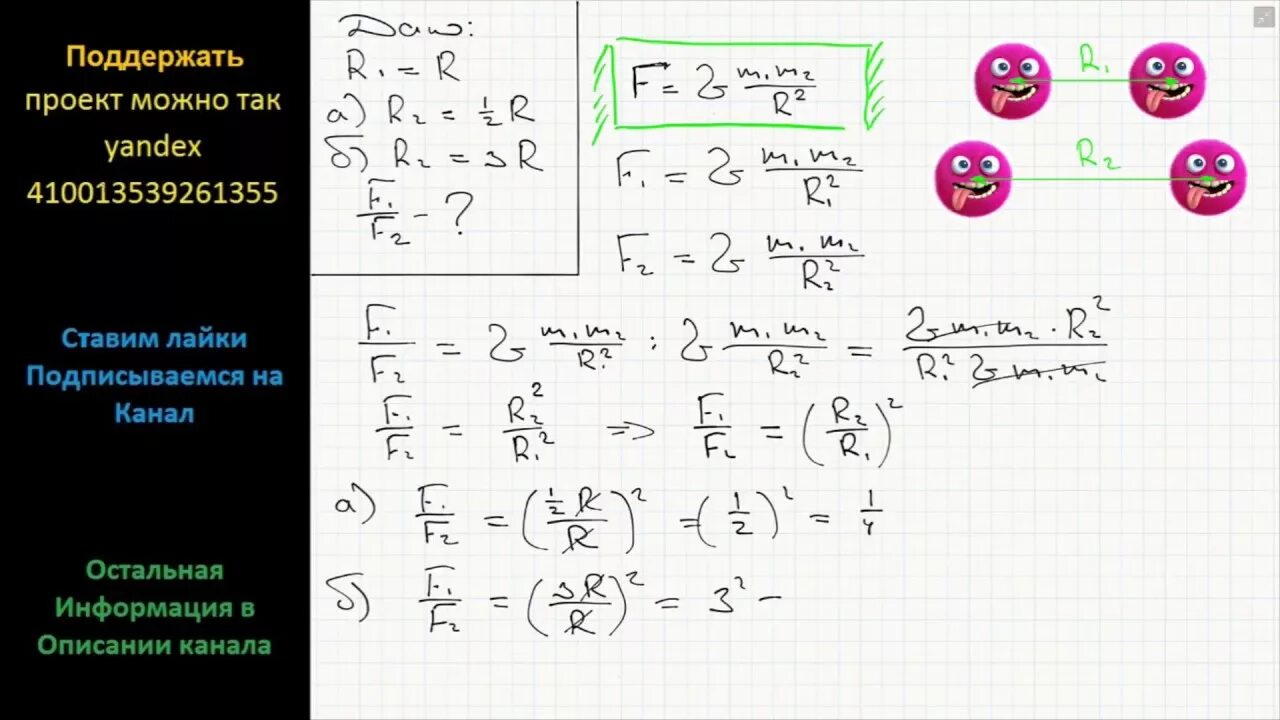 Поддержать
проект можно так
yandex
410013539261355
Ставим лайки
Подписываемся на
Канал
Остальная
Информация в
Описании канала
Дано:
R₁ = R
а) R₂ = ½ R
б) R₂ = 3 R
F₁/F₂ - ?
F = G m₁m₂/R²
F₁ = G m₁m₂/R₁²
F₂ = G m₁m₂/R₂²
R₁
R₂
F₁/F₂ = G m₁m₂/R₁² : G m₁m₂/R₂² = G m₁m₂ · R₂²/R₁² G m₁m₂
F₁/F₂ = R₂²/R₁² => F₁/F₂ = (R₂/R₁)²
а) F₁/F₂ = (½ R/R)² = (1/2)² = 1/4
б) F₁/F₂ = (3R/R)² = 3² –